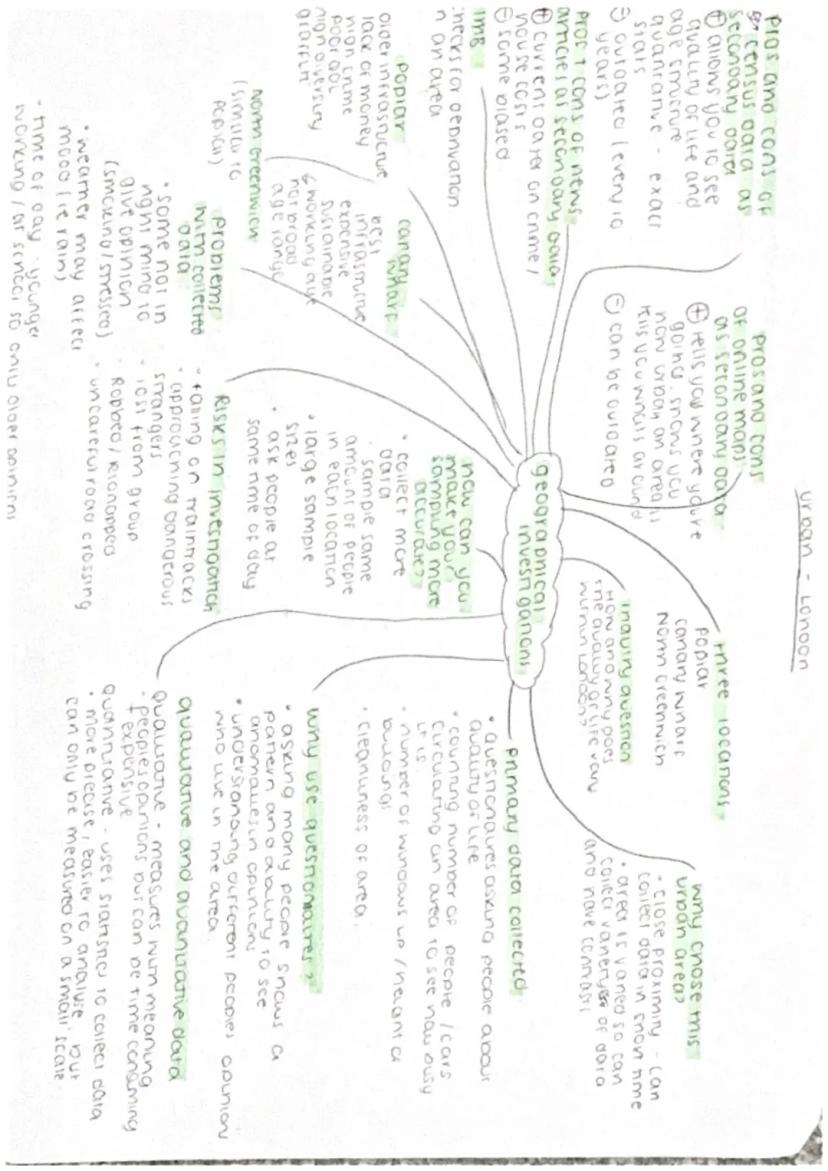 Urban - London
Pros and cons of
census data as
secondary data
⊕ allows you to see
quality of life and
age structure
quantitative - exact
stats
⊖ outdated (every 10
years)
pros and cons
of online maps
as secondary data
⊕ tells you where you're
going, shows you
how urban an area is
tells you what's around
⊖ can be outdated
three locations
Poplar
Canary Wharf
North Greenwich
why chose this
urban area?
- close proximity - can
collect data in short time
• area is varied so can
collect varietys of data
and have contrast
inquiry question
How and why does
the quality of life vary
within London?
Pros + cons of news
articles as secondary data
⊕ current data on crime /
house costs
⊖ some biased
IMB
checks for deprivation
in an area
geographical
investigations
primary data collected
• questionaires asking people about
quality of life
• counting number of people / cars
circulating an area to see how busy
it is
• number of windows up / height of
buildings
• cleanliness of area
Poplar
older infrastructure
lack of money
high crime
poor QOL
high diversity
graffiti
Canary Wharf
best
infrastructure
expensive
sustainable
↳ working age
not broad
age range
how can you
make your
sampling more
accurate?
• collect more
data
• sample same
amount of people
in each location
• large sample
sizes
• ask people at
same time of day
why use questionnaires?
• asking many people shows a
pattern and ability to see
anomalies in opinion
• understanding different peoples opinion
who live in the area
North Greenwich
(similar to
Poplar)
Problems
with collected
data
• some not in
right mind to
give opinion
(smoking / stressed)
• weather may affect
mood (ie rain)
• time of day - younger
working / at school so only older opinions
Risks in investigation
• falling on traintracks
• approaching dangerous
strangers
• lost from group
• Robbed / kidnapped
• uncareful road crossing
qualitative and quantitative data
Qualitative - measures with meaning
• peoples opinions but can be time consuming
+ expensive
Quantitative - uses statistics to collect data
• more precise, easier to analyse but
can only be measured on a small scale